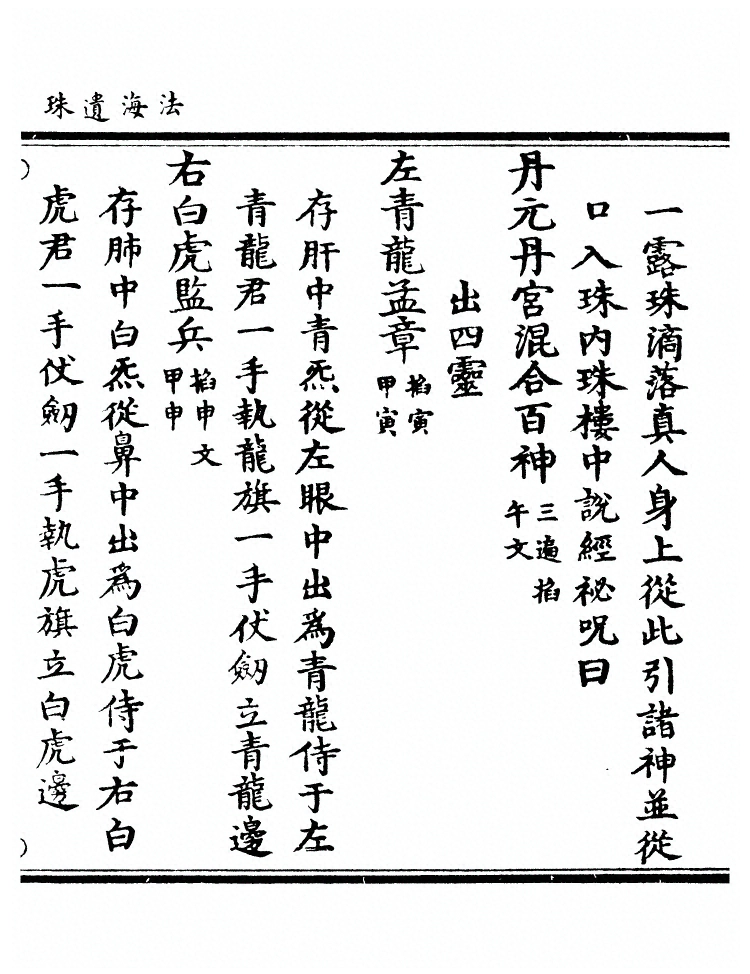 法海遺珠
一露珠滴落真人身上從此引諸神並從
口入珠內珠樓中說經祕呪曰
丹元丹宮混合百神三遍掐午文
出四靈
左青龍孟章掐寅甲寅
存肝中青炁從左眼中出為青龍侍于左
青龍君一手執龍旗一手仗劒立青龍邊
右白虎監兵掐申文甲申
存肺中白炁從鼻中出為白虎侍于右白
虎君一手仗劒一手執虎旗立白虎邊